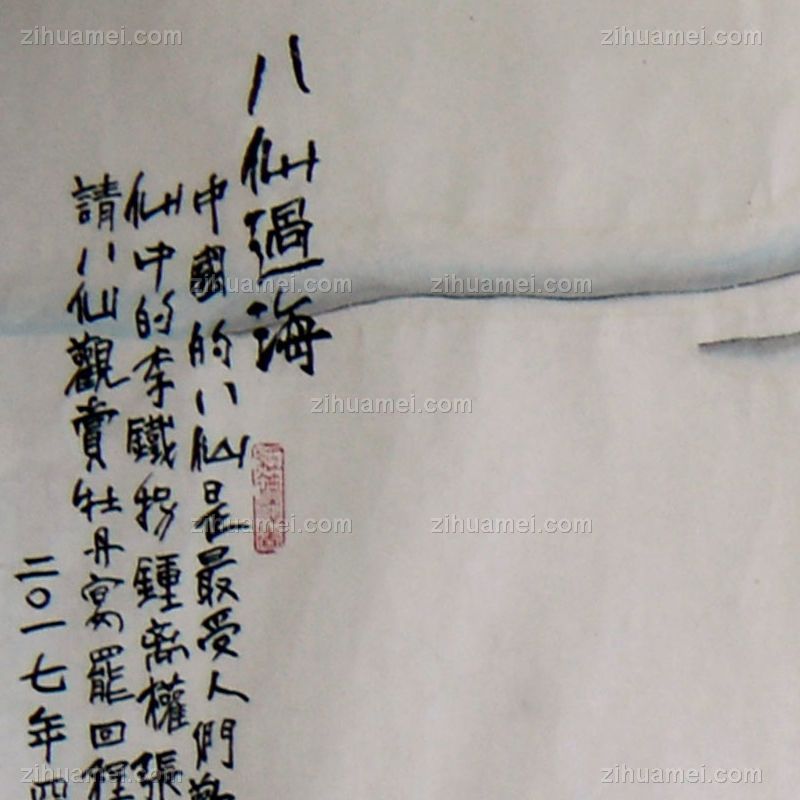 八仙過海
中國的八仙是最受人們
仙中的李鐵拐鍾离權張
請八仙觀賞牡丹宴罷回程
二〇一七年四
zihuamei.com
zihuamei.com
zihuamei.com
zihuamei.com
zihuamei.com
zihuamei.com
zihuamei.com
zihuamei.com
zihuamei.com
zihuamei.com
zihuamei.com
zihuamei.com
zihuamei.com